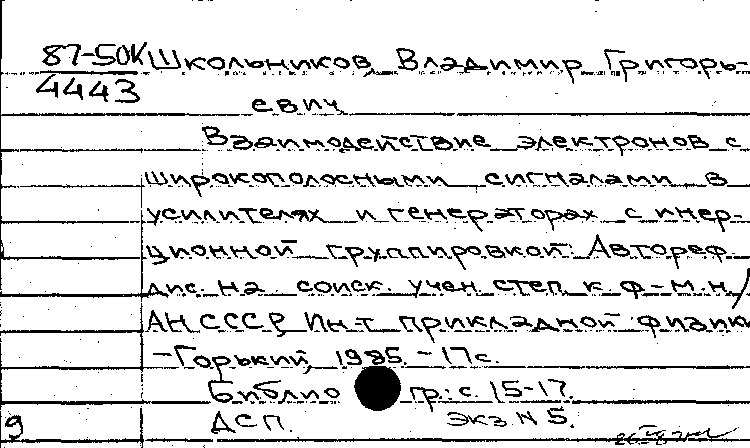 87-50К Школьников, Владимир Григорь-
4443
евич
Взаимодействие электронов с
широкополосными сигналами в
усилителях и генераторах с инер-
ционной группировкой: Автореф.
дис. на соиск. учен. степ. к. ф-м.н./
АН СССР, Ин-т прикладной физики
-Горький, 1985. - 17 с.
Библиогр.: с 15-17.
ДСП. Экз N 5.
9